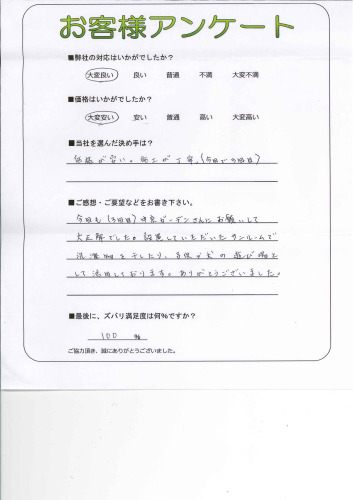 お客様アンケート
■弊社の対応はいかがでしたか?
大変良い 良い 普通 不満 大変不満
■価格はいかがでしたか?
大変安い 安い 普通 高い 大変高い
■当社を選んだ決め手は?
価格が安い。施工が丁寧(今回で3回目)
■ご感想・ご要望などをお書き下さい。
今回も(3回目) ガーデンさんにお願いして
大正解でした。設置していただいたサンルームで
洗濯物を干したり、子供や犬の遊び場と
して活用しております。ありがとうございました。
■最後に、ズバリ満足度は何%ですか?
100 %
ご協力頂き、誠にありがとうございました。